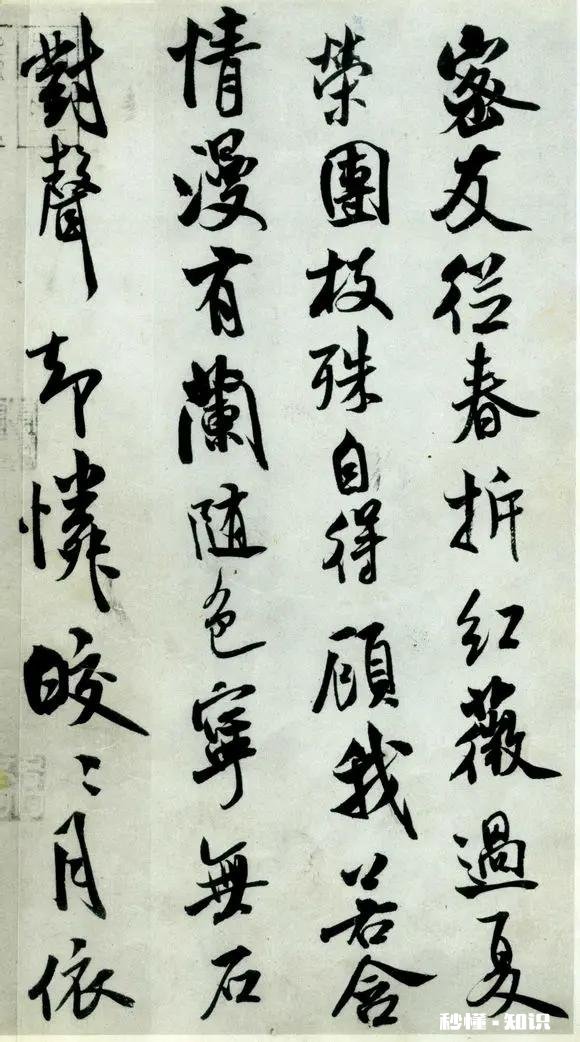 密友從春拆紅薇過夏
榮團枝殊自得顧我若含
情漫有蘭随色寧無石
對聲却憐皎〻月依
秒懂·知识